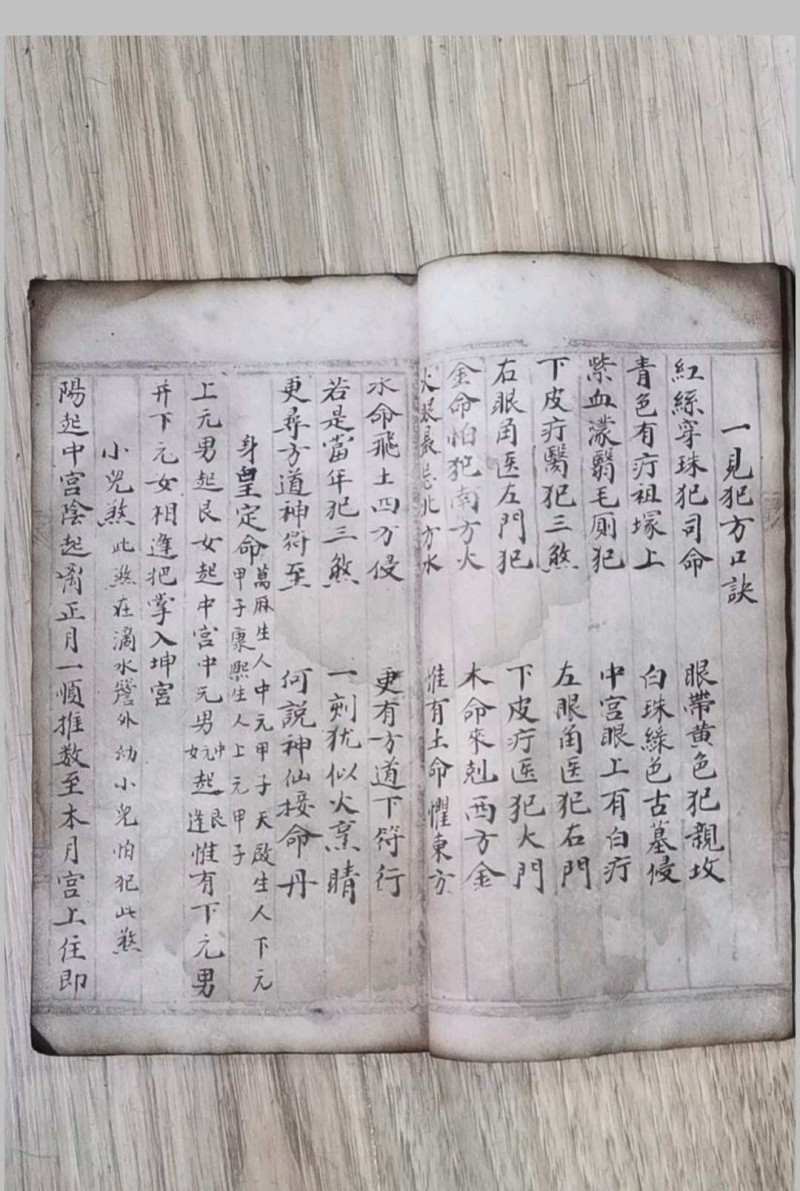 一見犯方口訣
紅絲穿珠犯司命 眼帶黄色犯親坟
青色有疔祖塚上 白珠綠色古墓侵
紫血濛翳毛厠犯 中宮眼上有白疔
下皮疔醫犯三煞 左眼角医犯右門
右眼角医左門犯 下皮疔医犯大門
金命怕犯南方火 木命來剋西方金
火眼最忌北方水 惟有土命懼東方
水命飛土四方侵 更有方道下符行
若是當年犯三煞 一刻犹似火烹睛
更尋方道神符至 何說神仙接命丹
身皇定命 萬麻生人中元甲子天啟生人下元
甲子康熙生人上元甲子
上元男起艮女起中宮中元男中元女起艮逢惟有下元男
并下元女相逢把掌入坤宮
小兒煞 此煞在滴水簷外幼小兒怕犯此煞
陽起中宮陰起离正月一順推数至本月宮上住即